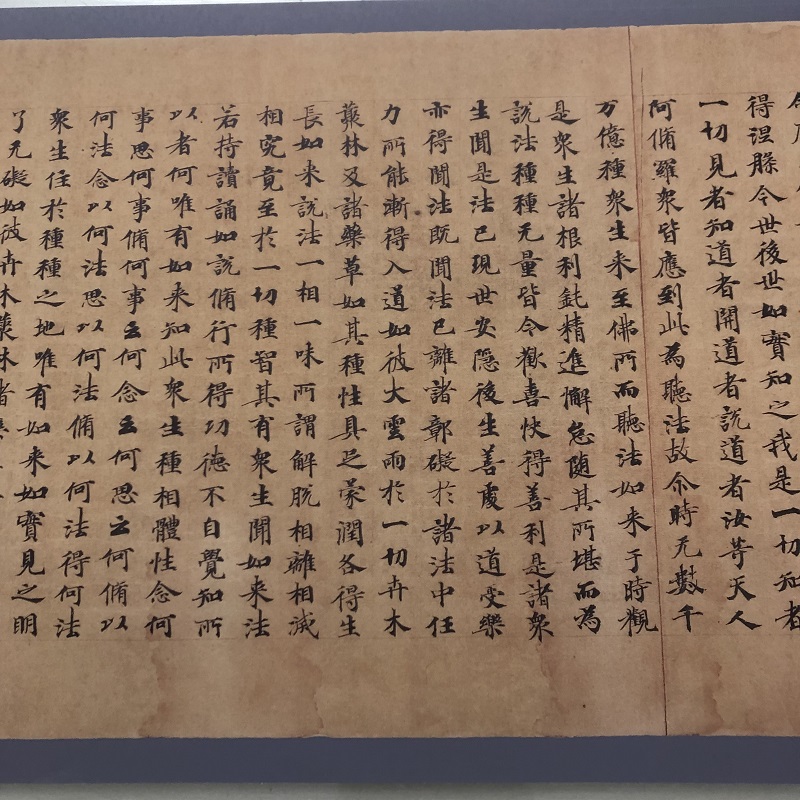 得涅槃今世後世如實知之我是一切知者
一切見者知道者開道者說道者汝等天人
阿脩羅眾皆應到此為聽法故尒時无數千
万億種眾生来至佛所而聽法如来于時觀
是眾生諸根利鈍精進懈怠随其所堪而為
說法種種无量皆令歡喜快得善利是諸眾
生聞是法已現世安隱後生善處以道受樂
亦得聞法既聞法已離諸鄣礙於諸法中任
力所能漸得入道如彼大雲雨於一切卉木
藂林及諸藥草如其種性具足蒙潤各得生
長如来說法一相一味所謂解脫相離相滅
相究竟至於一切種智其有眾生聞如来法
若持讀誦如說脩行所得功德不自覺知所
以者何唯有如来知此眾生種相體性念何
事思何事脩何事云何念云何思云何脩以
何法念以何法思以何法脩以何法得何法
眾生住於種種之地唯有如来如實見之明
了无礙如彼卉木藂林諸